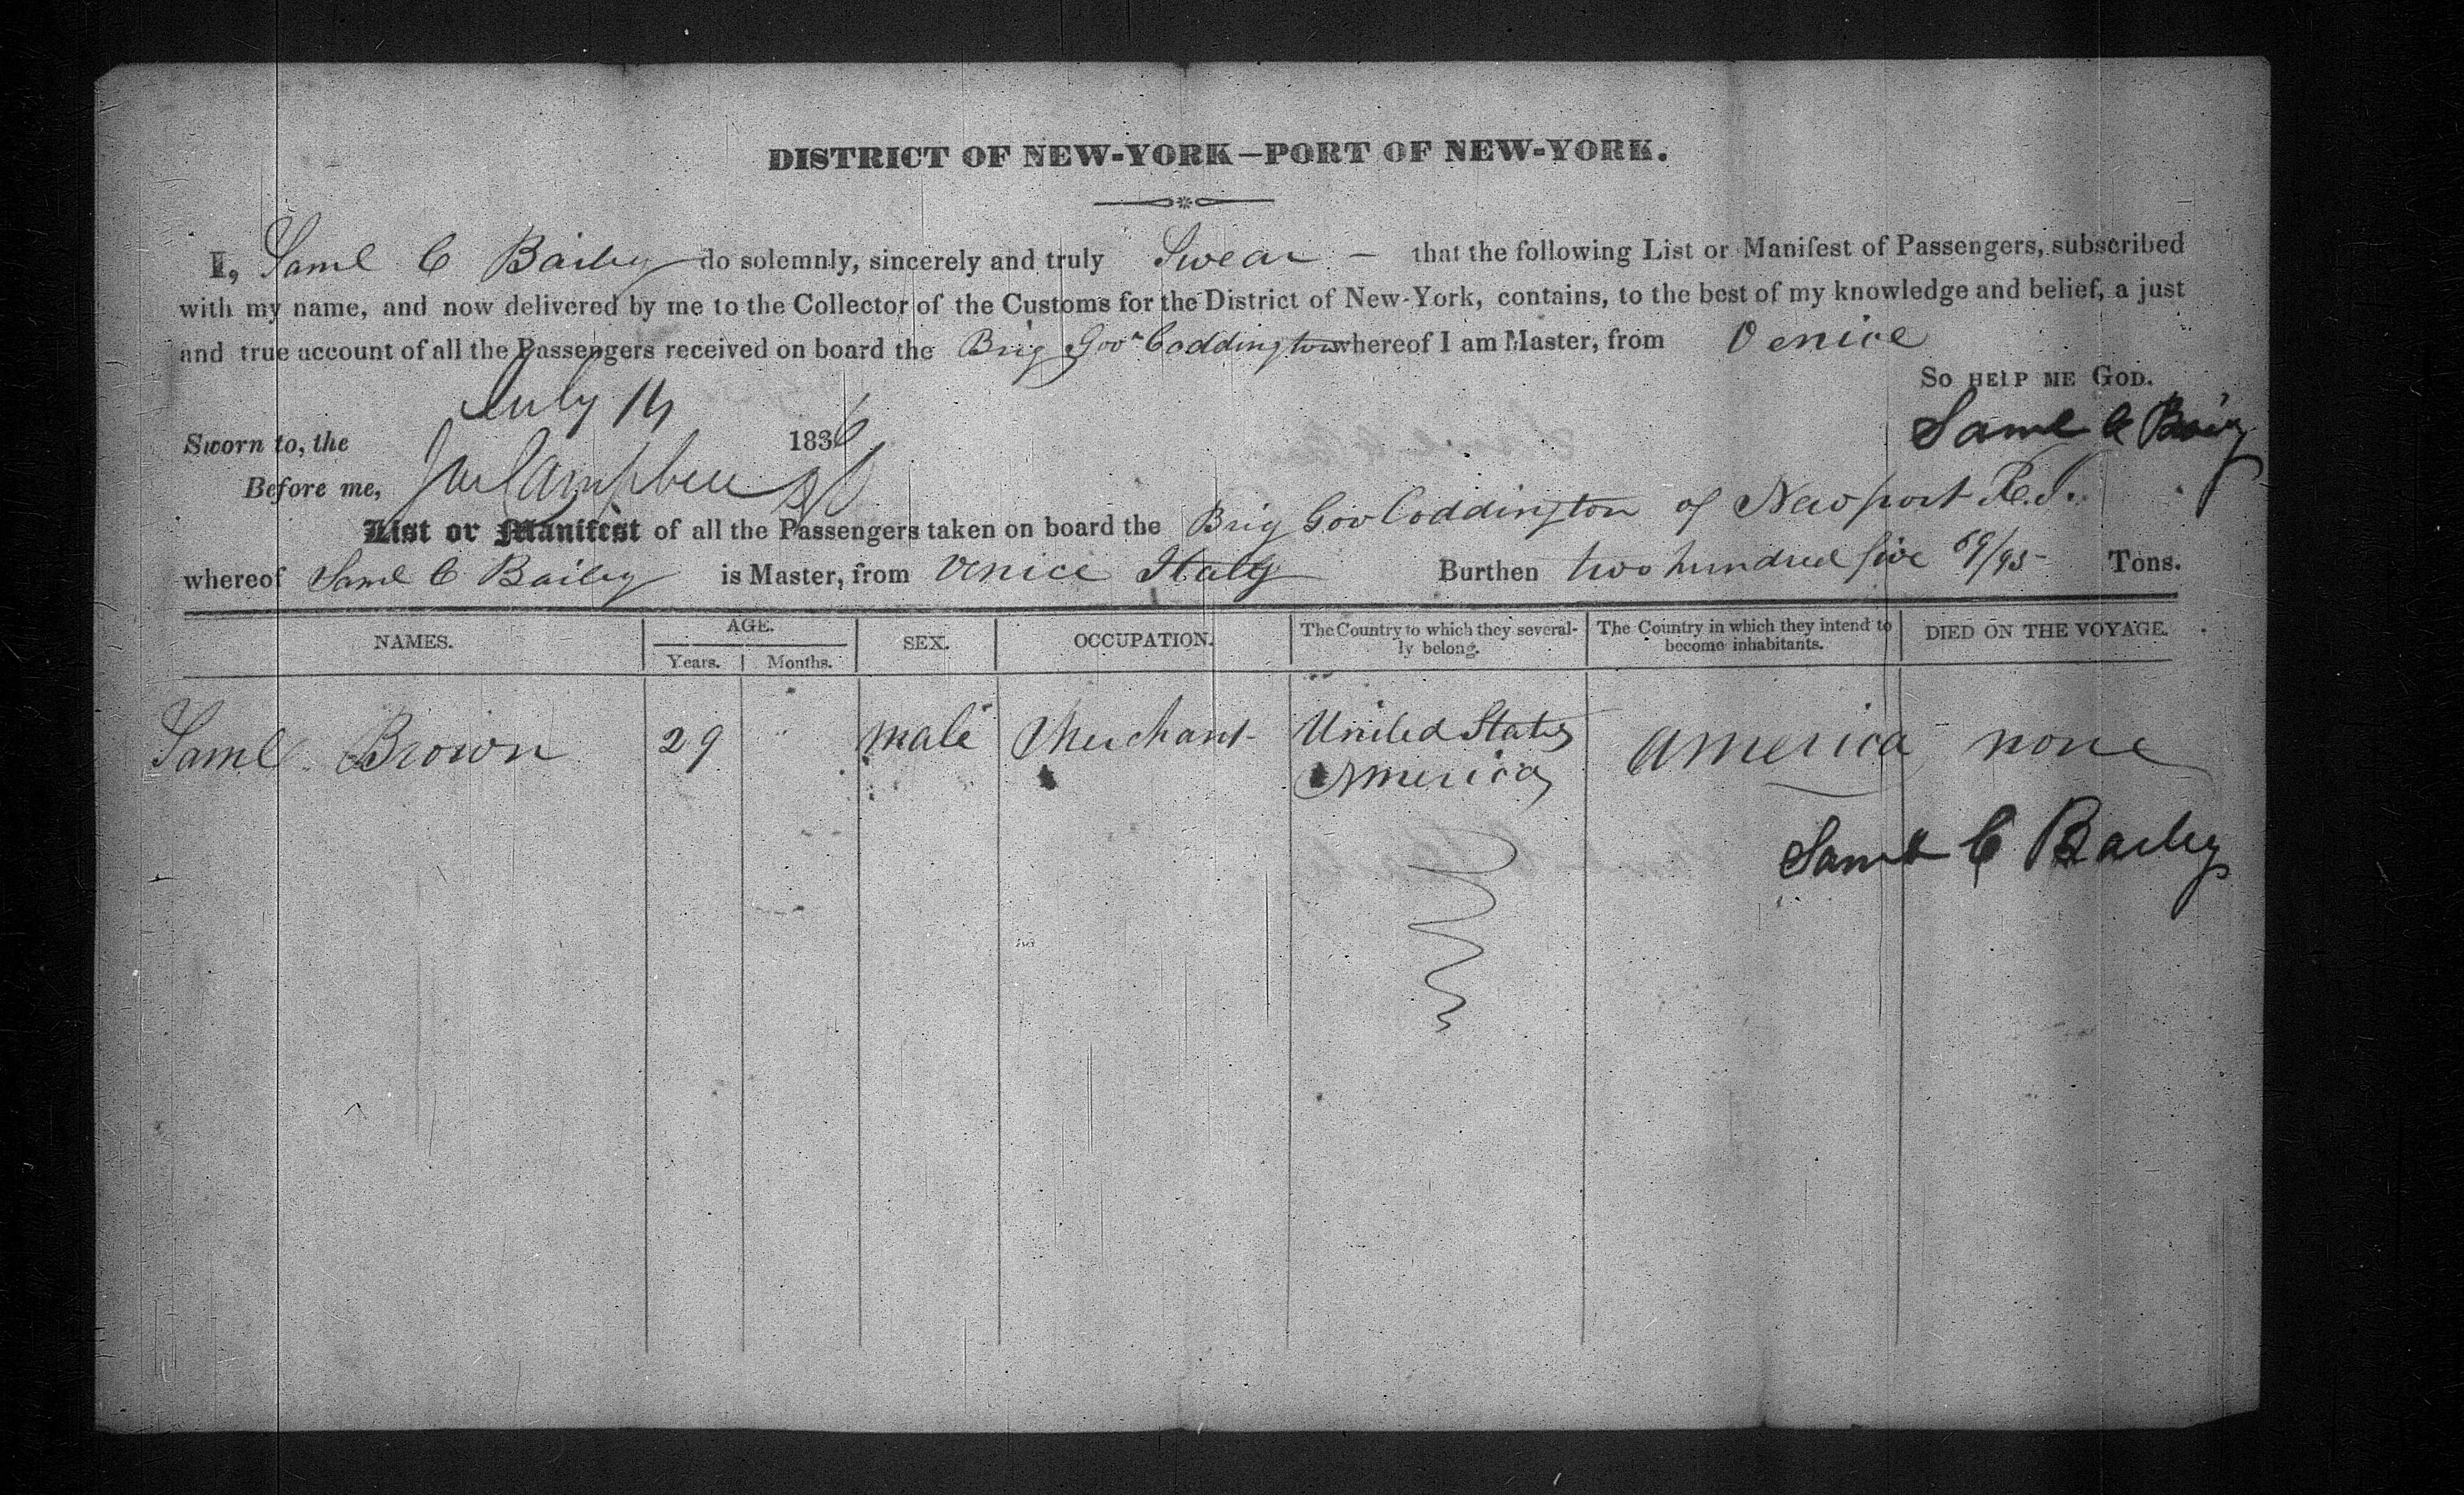 DISTRICT OF NEW-YORK—PORT OF NEW-YORK.
I, Saml C Bailey do solemnly, sincerely and truly Swear – that the following List or Manifest of Passengers, subscribed
with my name, and now delivered by me to the Collector of the Customs for the District of New-York, contains, to the best of my knowledge and belief, a just
and true account of all the Passengers received on board the Brig Govr Coddington whereof I am Master, from Venice
So HELP ME GOD.
Sworn to, the July 14 1836 Saml C Bailey
Before me, Campbell
List or Manifest of all the Passengers taken on board the Brig Gov Coddington of Newport R.I.
whereof Saml C Bailey is Master, from Venice Italy Burthen two hundred five 69/95 Tons.
NAMES. AGE. SEX. OCCUPATION. The Country to which they several-ly belong. The Country in which they intend to become inhabitants. DIED ON THE VOYAGE.
Years. Months.
Saml Brown 29 " male Merchant United States America America none
Saml C Bailey